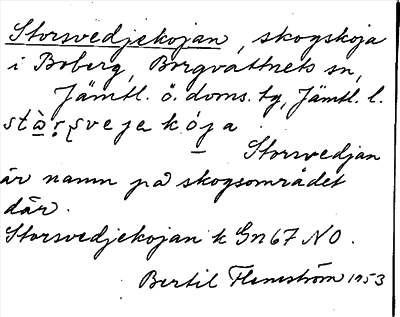 Storsvedjekojan, skogskoja
i Boberg, Borgvattnets sn,
Jämtl. ö. doms. tg, Jämtl. l.
stàr̥ʂvejekója
Storsvedjan
är namn på skogsområdet
där.
Storsvedjekojan k Gn 67 NO.
Bertil Flemström 1953